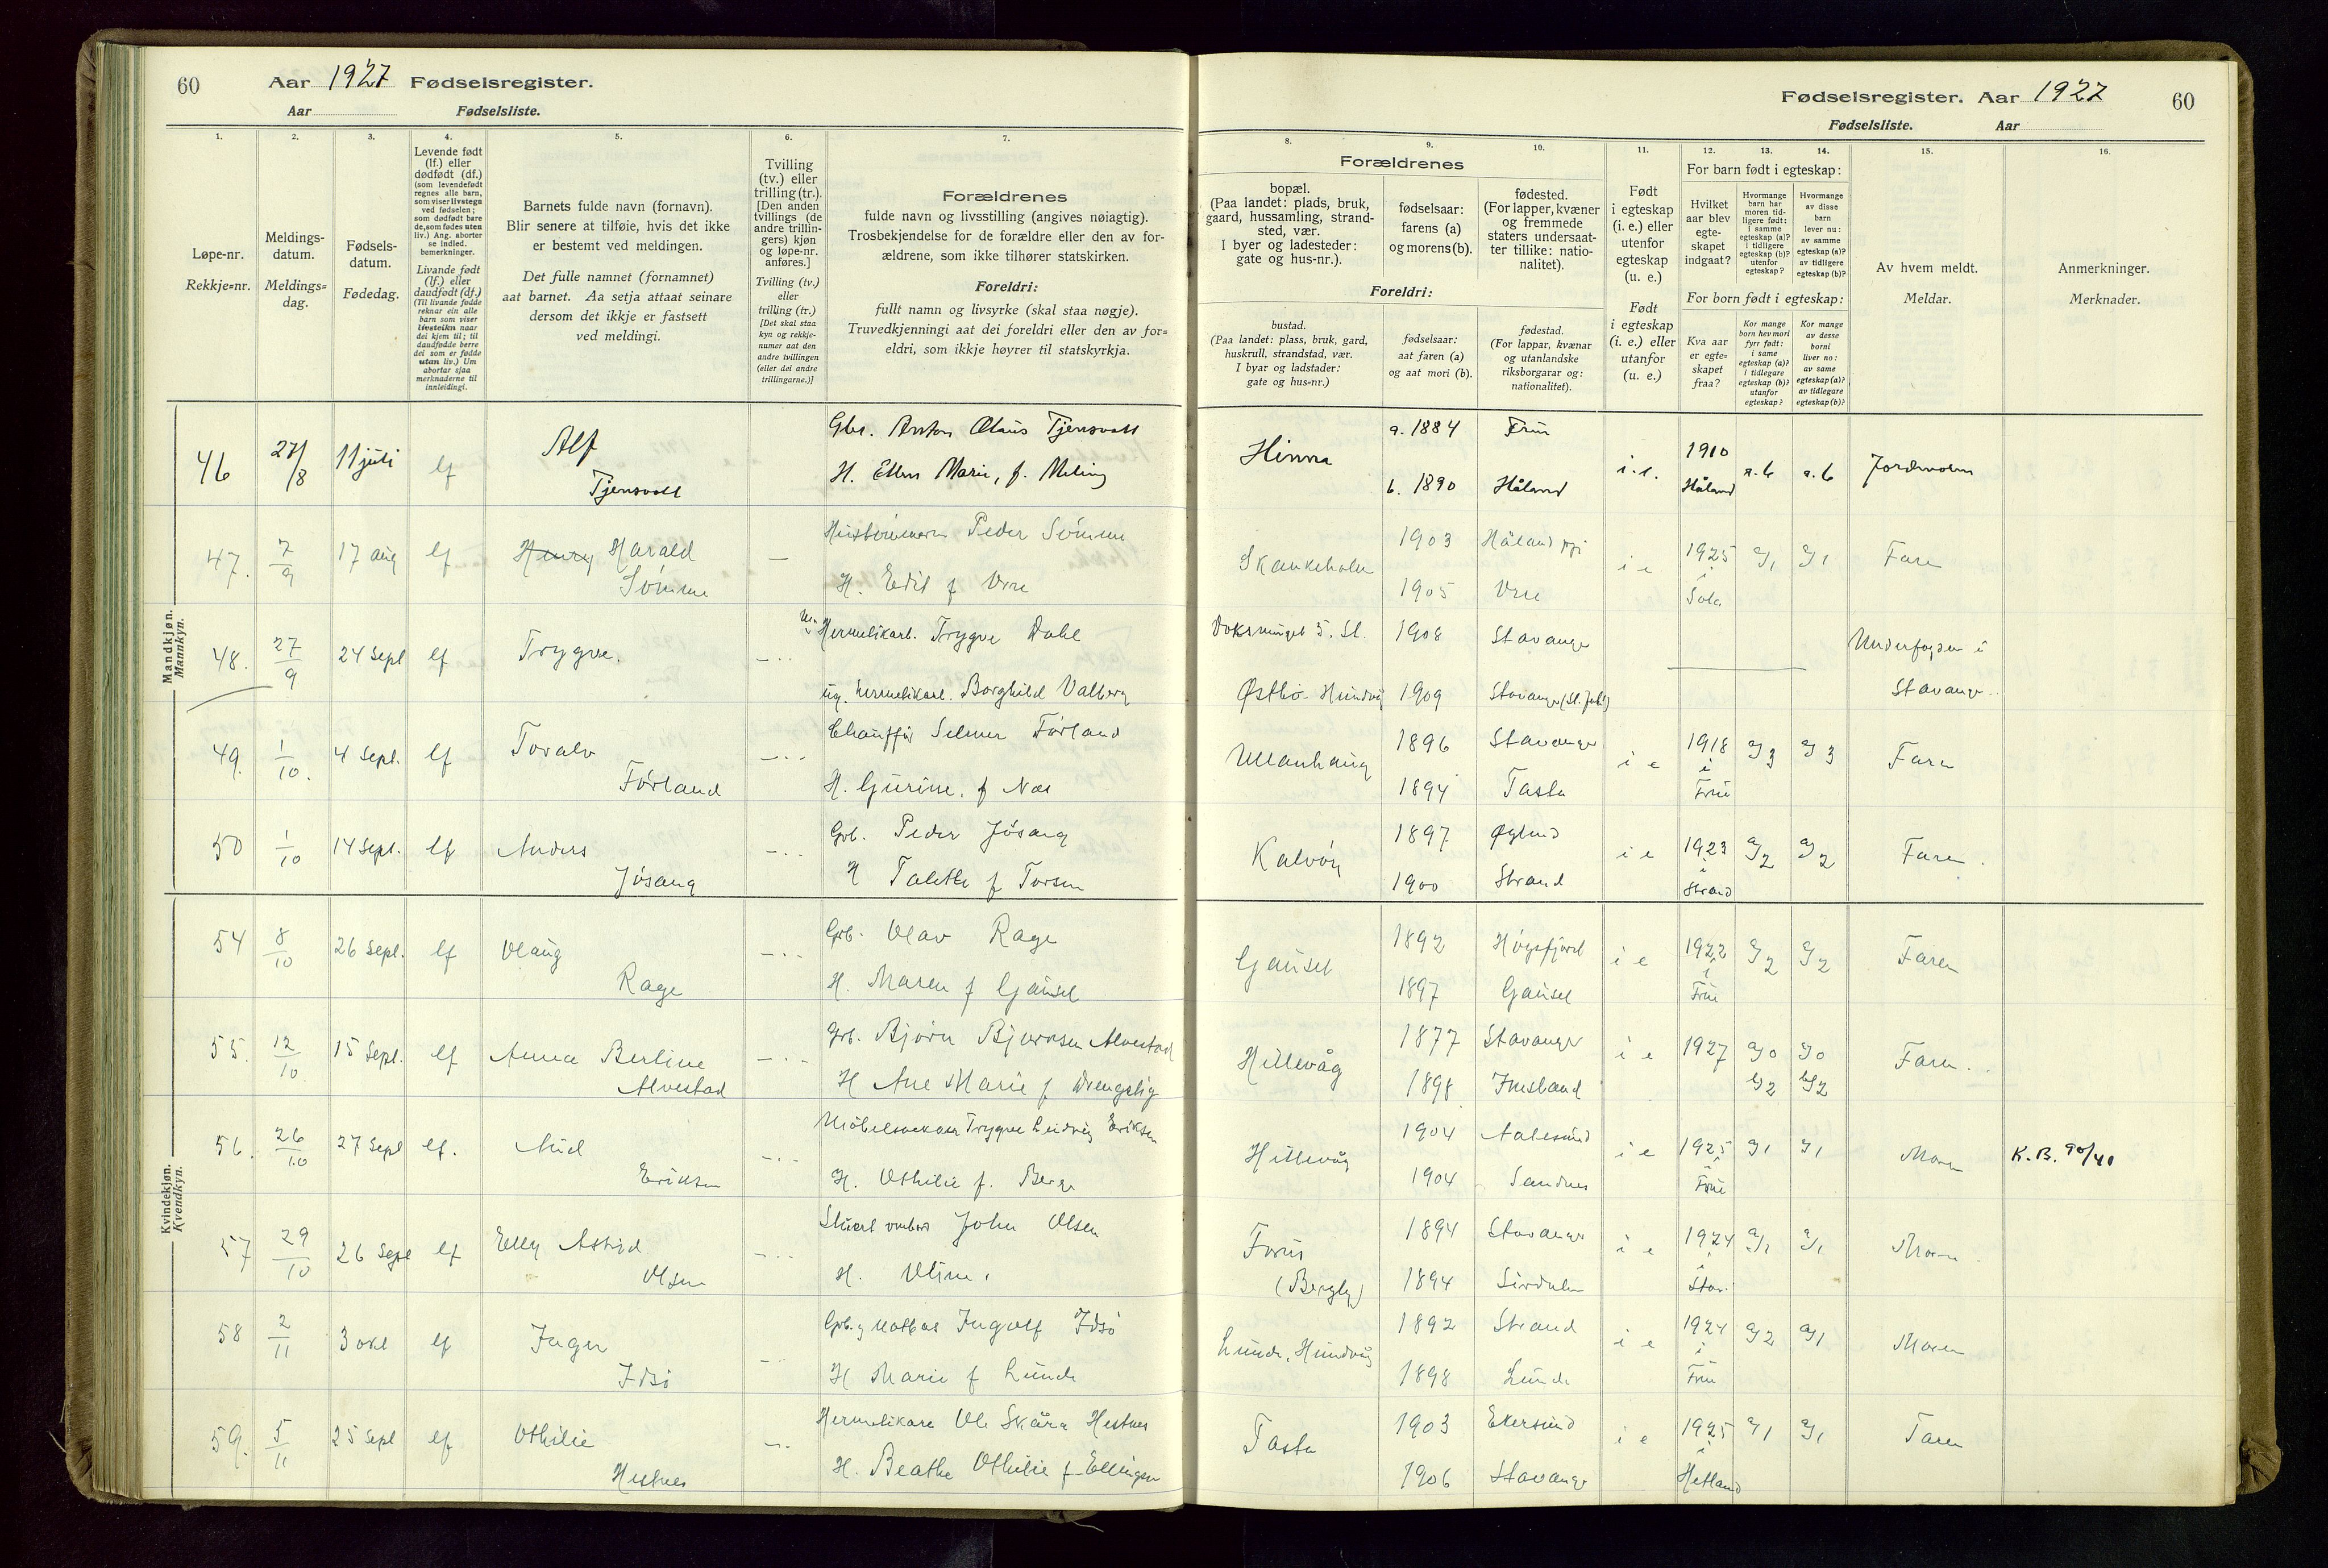 60
Aar 1927 Fødselsregister.
Aar Fødselsliste.
1.
Løpe-nr.
Rekkje=nr.
2.
Meldings-
datum.
Meldings=
dag.
3.
Fødsels-
datum.
Fødedag.
4.
Levende født
(lf.) eller
dødfødt (df.)
(som levendefødt
regnes alle barn,
som viser livstegn
ved fødselen;
som dødfødt bare
de, som fødes uten
liv.) Ang. aborter
se indled.
bemerkninger.
Livande født
(lf.) eller
daudfødt (df.)
(Til livande fødde
reknar ein alle
barn som viser
livsteikn naar
dei kjem til; til
daudfødde berre
dei som er fødde
utan liv.) Um
abortar sjaa
merknaderne til
innleidingi.
5.
Barnets fulde navn (fornavn).
Blir senere at tilføie, hvis det ikke
er bestemt ved meldingen.
Det fulle namnet (fornamnet)
aat barnet. Aa setja attaat seinare
dersom det ikkje er fastsett
ved meldingi.
6.
Tvilling
(tv.) eller
trilling (tr.).
[Den anden
tvillings (de
andre trillin-
gers) kjøn
og løpe-nr.
anføres.]
Tvilling (tv.)
eller
trilling (tr.)
[Det skal staa
kyn og rekkje-
numer aat den
andre tvillingen
(eller dei andre
trillingarne.)]
7.
Forældrenes
fulde navn og livsstilling (angives nøiagtig).
Trosbekjendelse for de forældre eller den av for-
ældrene, som ikke tilhører statskirken.
Foreldri:
fullt namn og livsyrke (skal staa nøgje).
Truvedkjenningi aat dei foreldri eller den av for=
eldri, som ikkje høyrer til statskyrkja.
Mandkjøn.
Mannkyn.
46 27/8 11 juli lf Alf Gbr. Anton Olaus Tjensvoll
Tjensvoll H. Ellen Marie, f. Meling
47. 7/9 17 aug lf Henry Harald — Peder Sømme
Sømme H. Edit f Vere
48. 27/9 24 Sept lf Trygve. Hermetikarb. Trygve Dahl
ug. hermetikarb. Borghild Valberg
49. 1/10. 4 Sept. lf Toralv Chauffør Selmer Førland
Førland H. Gurine. f Næs
50 1/10 14 Sept. lf Anders Grb. Peder Jøsang
Jøsang H Talette f Torsen
Kvindekjøn.
Kvendkyn.
54 8/10 26 Sept. lf Olaug Grb. Olav Rage
Rage H. Maren f Gausel
55. 12/10 15 Sept. lf Anna Berline Grb. Bjørn Bjørnsen Alvestad
Alvestad H Ane Marie f
56. 26/10 27 Sept lf. Aud Trygve Ludvig Eriksen
Eriksen H. Othilie f. Berge
57 29/10 26 Sept lf Elly Astrid John Olsen
Olsen H. Oline.
58 2/11 3 okt lf Inger Ingolf Idsø
Idsø H Marie f Lunde
59. 5/11 25 Sept lf Othilie Ole Skåra Hestnes
Hestnes H. Beathe Othilie f. Ellingsen
Fødselsregister. Aar 1927 60
Fødselsliste. Aar
8.
Forældrenes
bopæl.
(Paa landet: plads, bruk,
gaard, hussamling, strand-
sted, vær.
I byer og ladesteder:
gate og hus-nr.).
Foreldri:
bustad.
(Paa landet: plass, bruk, gard,
huskrull, strandstad, vær.
I byar og ladstader:
gate og hus=nr.)
9.
fødselsaar:
farens (a)
og morens (b).
fødselsaar:
aat faren (a)
og aat mori (b).
10.
fødested.
(For lapper, kvæner
og fremmede
staters undersaat-
ter tillike: natio-
nalitet).
fødestad.
(For lappar, kvænar
og utanlandske
riksborgarar og:
nationalitet).
11.
Født
i egteskap
(i. e.) eller
utenfor
egteskap
(u. e.)
Født
i egteskap
(i. e.) eller
utanfor
(u. e.)
12. 13. 14.
For barn født i egteskap:
Hvilket
aar blev
egte-
skapet
indgaat?
Hvormange
barn har
moren tid-
ligere født:
i samme
egteskap (a)?
i tidligere
egteskap (b)?
utenfor
egteskap?
Hvormange
av disse
barn
lever nu:
av samme
egteskap (a)?
av tidligere
egteskap (b)?
For born født i egteskap:
Kva aar
er egte=
skapet
fraa?
Kor mange
born hev mori
fyrr født:
i same
egteskap (a)?
i tidlegare
egteskap (b)?
utanfor
egteskap?
Kor mange
av desse
borni
liver no:
av same
egteskap (a)?
av tidlegare
egteskap (b)?
15.
Av hvem meldt.
Meldar.
16.
Anmerkninger.
Merknader.
Hinna a. 1884 Frue i.e. 1910 a. 6 a. 6 Jordmoren
b. 1890 Håland Håland
Skankeholm 1903 Håland i e 1925 a/1 a/1 Faren
1905 Vree i Sola
1908 Stavanger
Østbø Hundvåg 1909 Stavanger Stavanger
Ullanhaug 1896 Stavanger i e 1918 a/3 a/3 Faren
1894 Tasta i Frue
Kalvøy 1897 Øglend i e 1923 a/2 a/2 Faren.
1900 Strand i Strand
Gausel 1892 Høgsfjord i e 1922 a/2 a/2 Faren
1897 Gausel i Frue
Hillevåg 1877 Stavanger i e 1927 a/0 a/0 Faren.
1898 Imsland b/2 b/2
Hillevåg 1904 Aalesund i e 1925 a/1 a/1 Moren K. B. 90/41
1904 Sandnes i Frue
Forus 1894 Stavanger i e 1924 a/1 a/1 Moren
(Bergly) 1894 Sirdalen i Stav.
Lunde, Hundvåg 1892 Strand i e 1924 a/2 a/1 Moren
1898 Lunde i Frue
Tasta 1903 Ekersund i e 1925 a/1 a/1 Faren
1906 Stavanger i Hetland